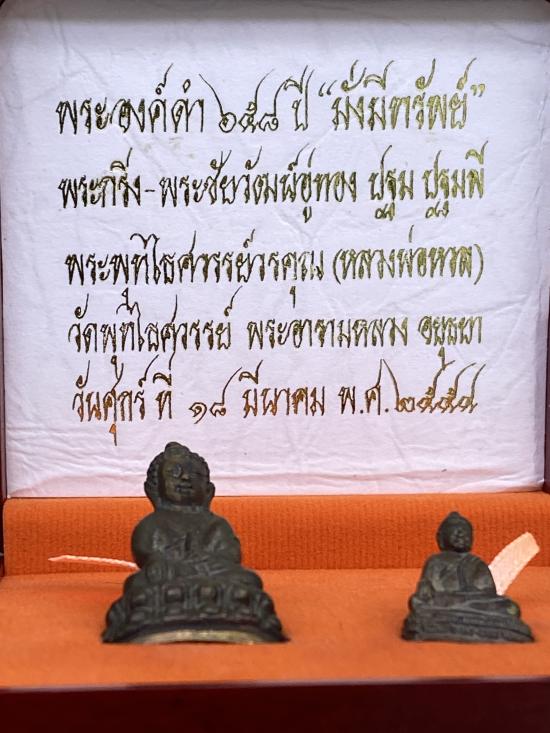 พระองค์ดำ ๖๕๘ ปี "มั่งมีทรัพย์"
พระกริ่ง-พระชัยวัฒน์อู่ทอง ปฐม ปฐมพี
พระพุทไธศวรรย์วรคุณ (หลวงพ่อหวล)
วัดพุทไธศวรรย์ พระอารามหลวง อยุธยา
วันศุกร์ ที่ ๑๘ มีนาคม พ.ศ.๒๕๕๔